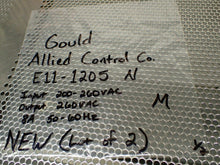 Gould
Allied Control Co.
E11-1205 N
Input 200-260VAC
Output 260VAC
8A 50-60Hz
M
NEW (Lot of 2)
1/2